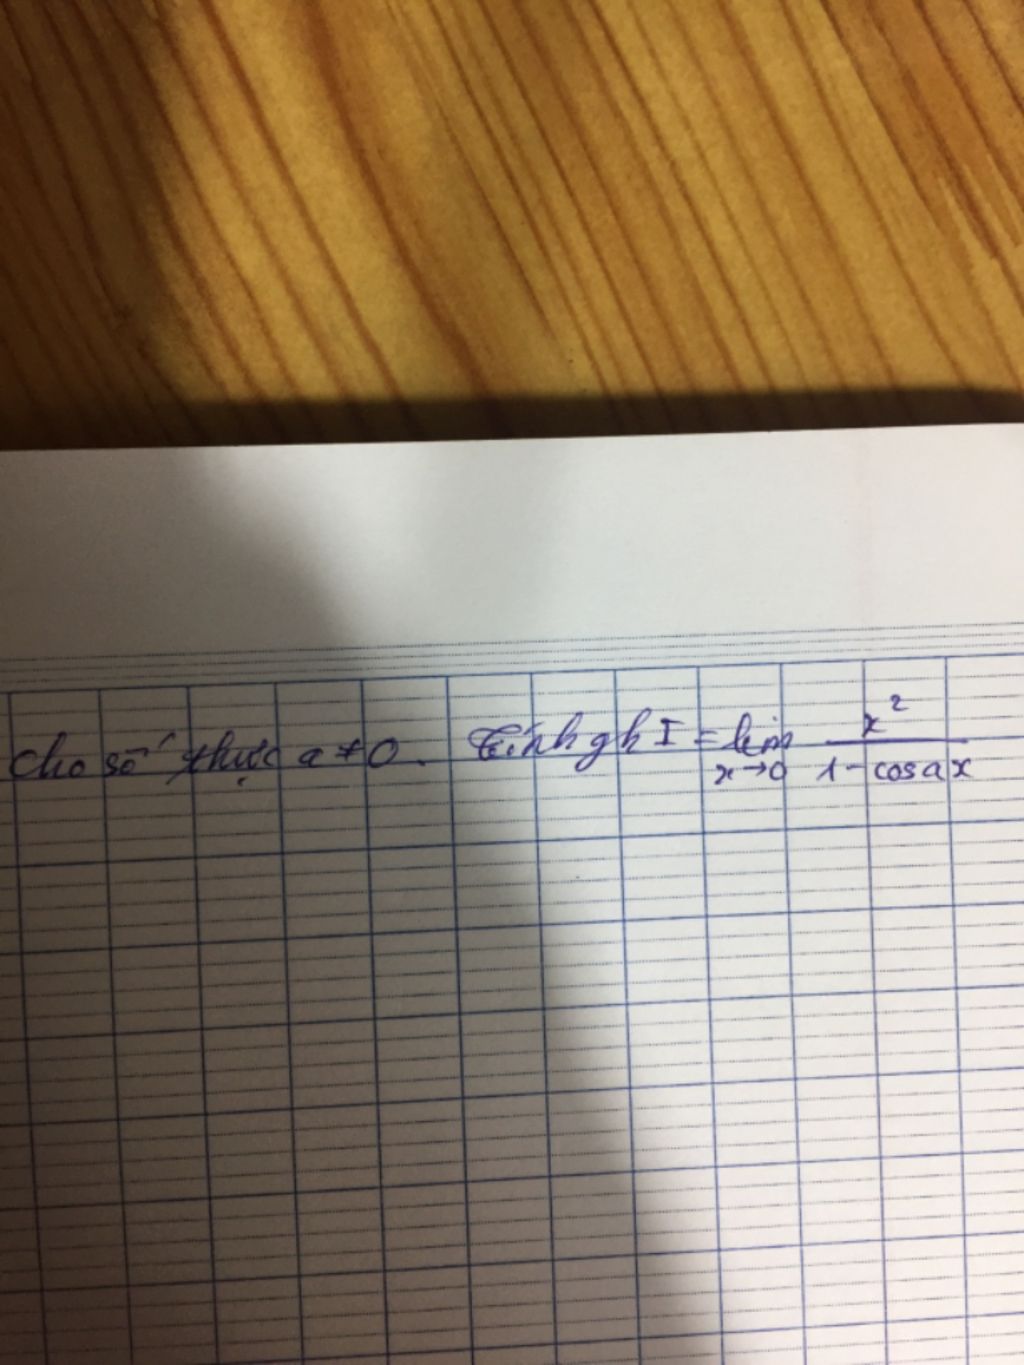 Cho số thực a ≠ 0. Tính gh I = lim x→0 x² / 1 - cosax